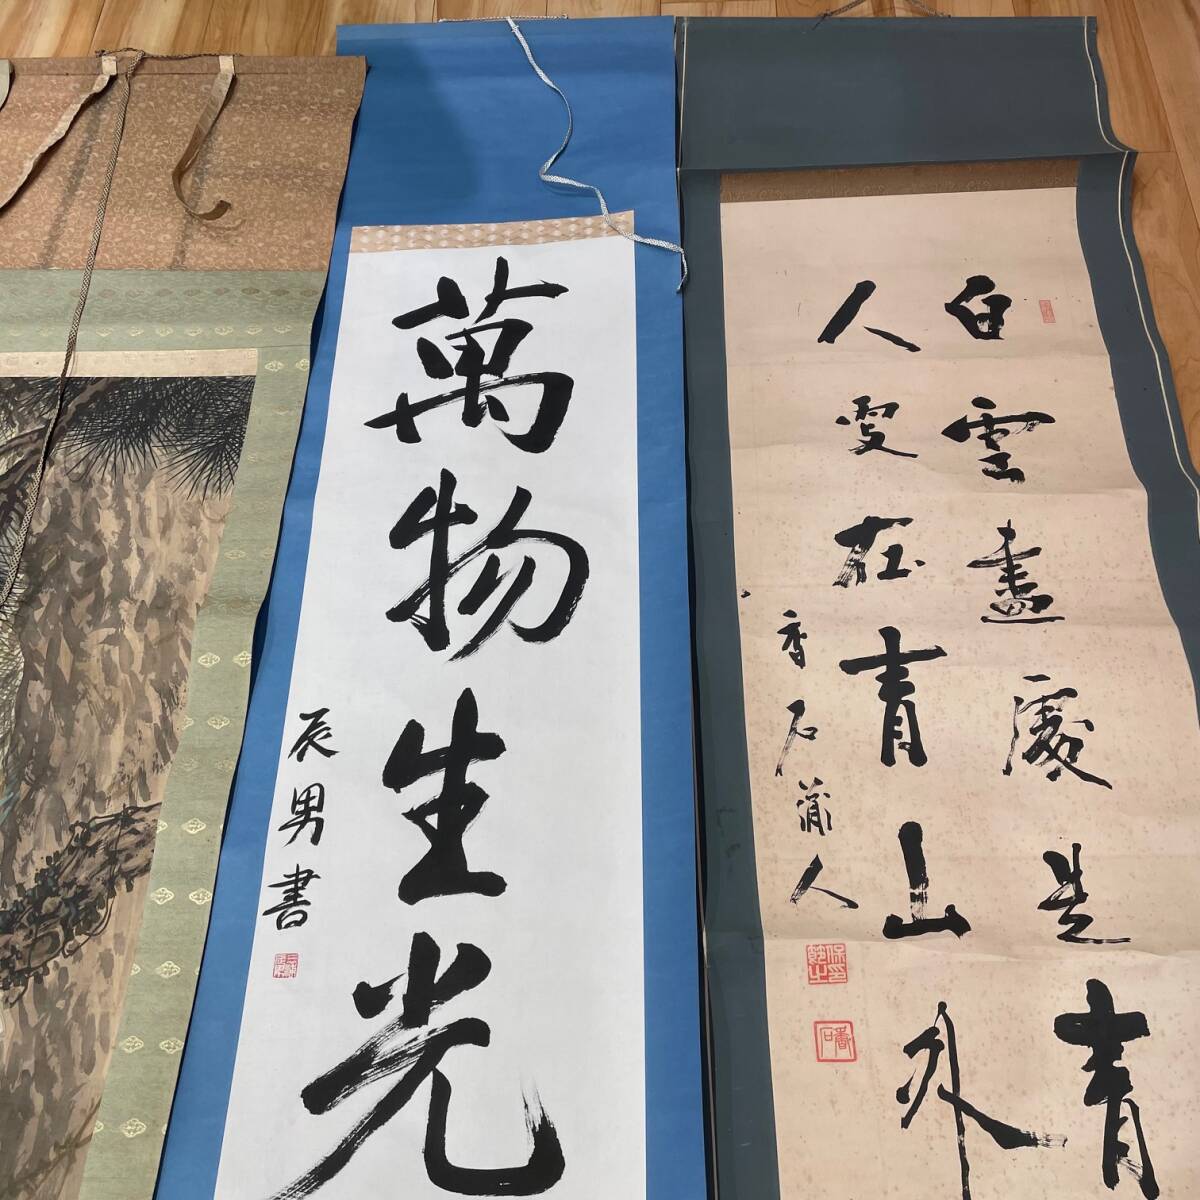 白雲盡處是青
人更在青山外
香石 人
萬物生光
辰男書